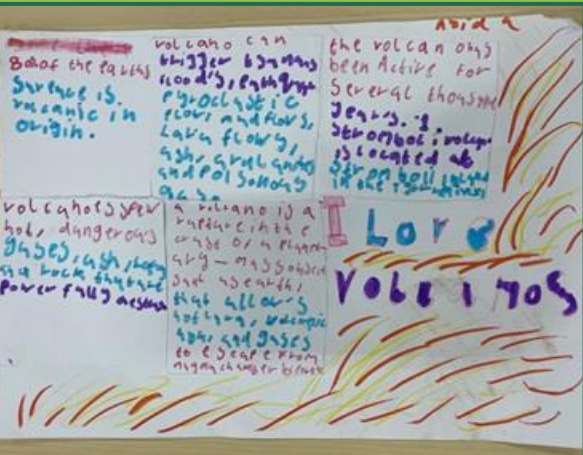 80% of the earths
surface is
volcanic in
origin.
volcano can
trigger tsunamis
floods, earthquake
pyroclastic
flow, mud flows,
Lava flows,
ash, avalanches
and poisonous
gas.
the volcan ohas
been Active for
Several thousand
years.
Stromboli volcano
is Located at
Stromboli
in the
volcanoes spew
hot, dangerous
gases, ash, lava
and rock that are
power fully
a volcano is a
rupture in the
crust of a planet
ary-mass object
such as earth,
that allows
hot lava, volcanic
ash, and gases
to escape from
magma chamber
I Love
Volcanoes